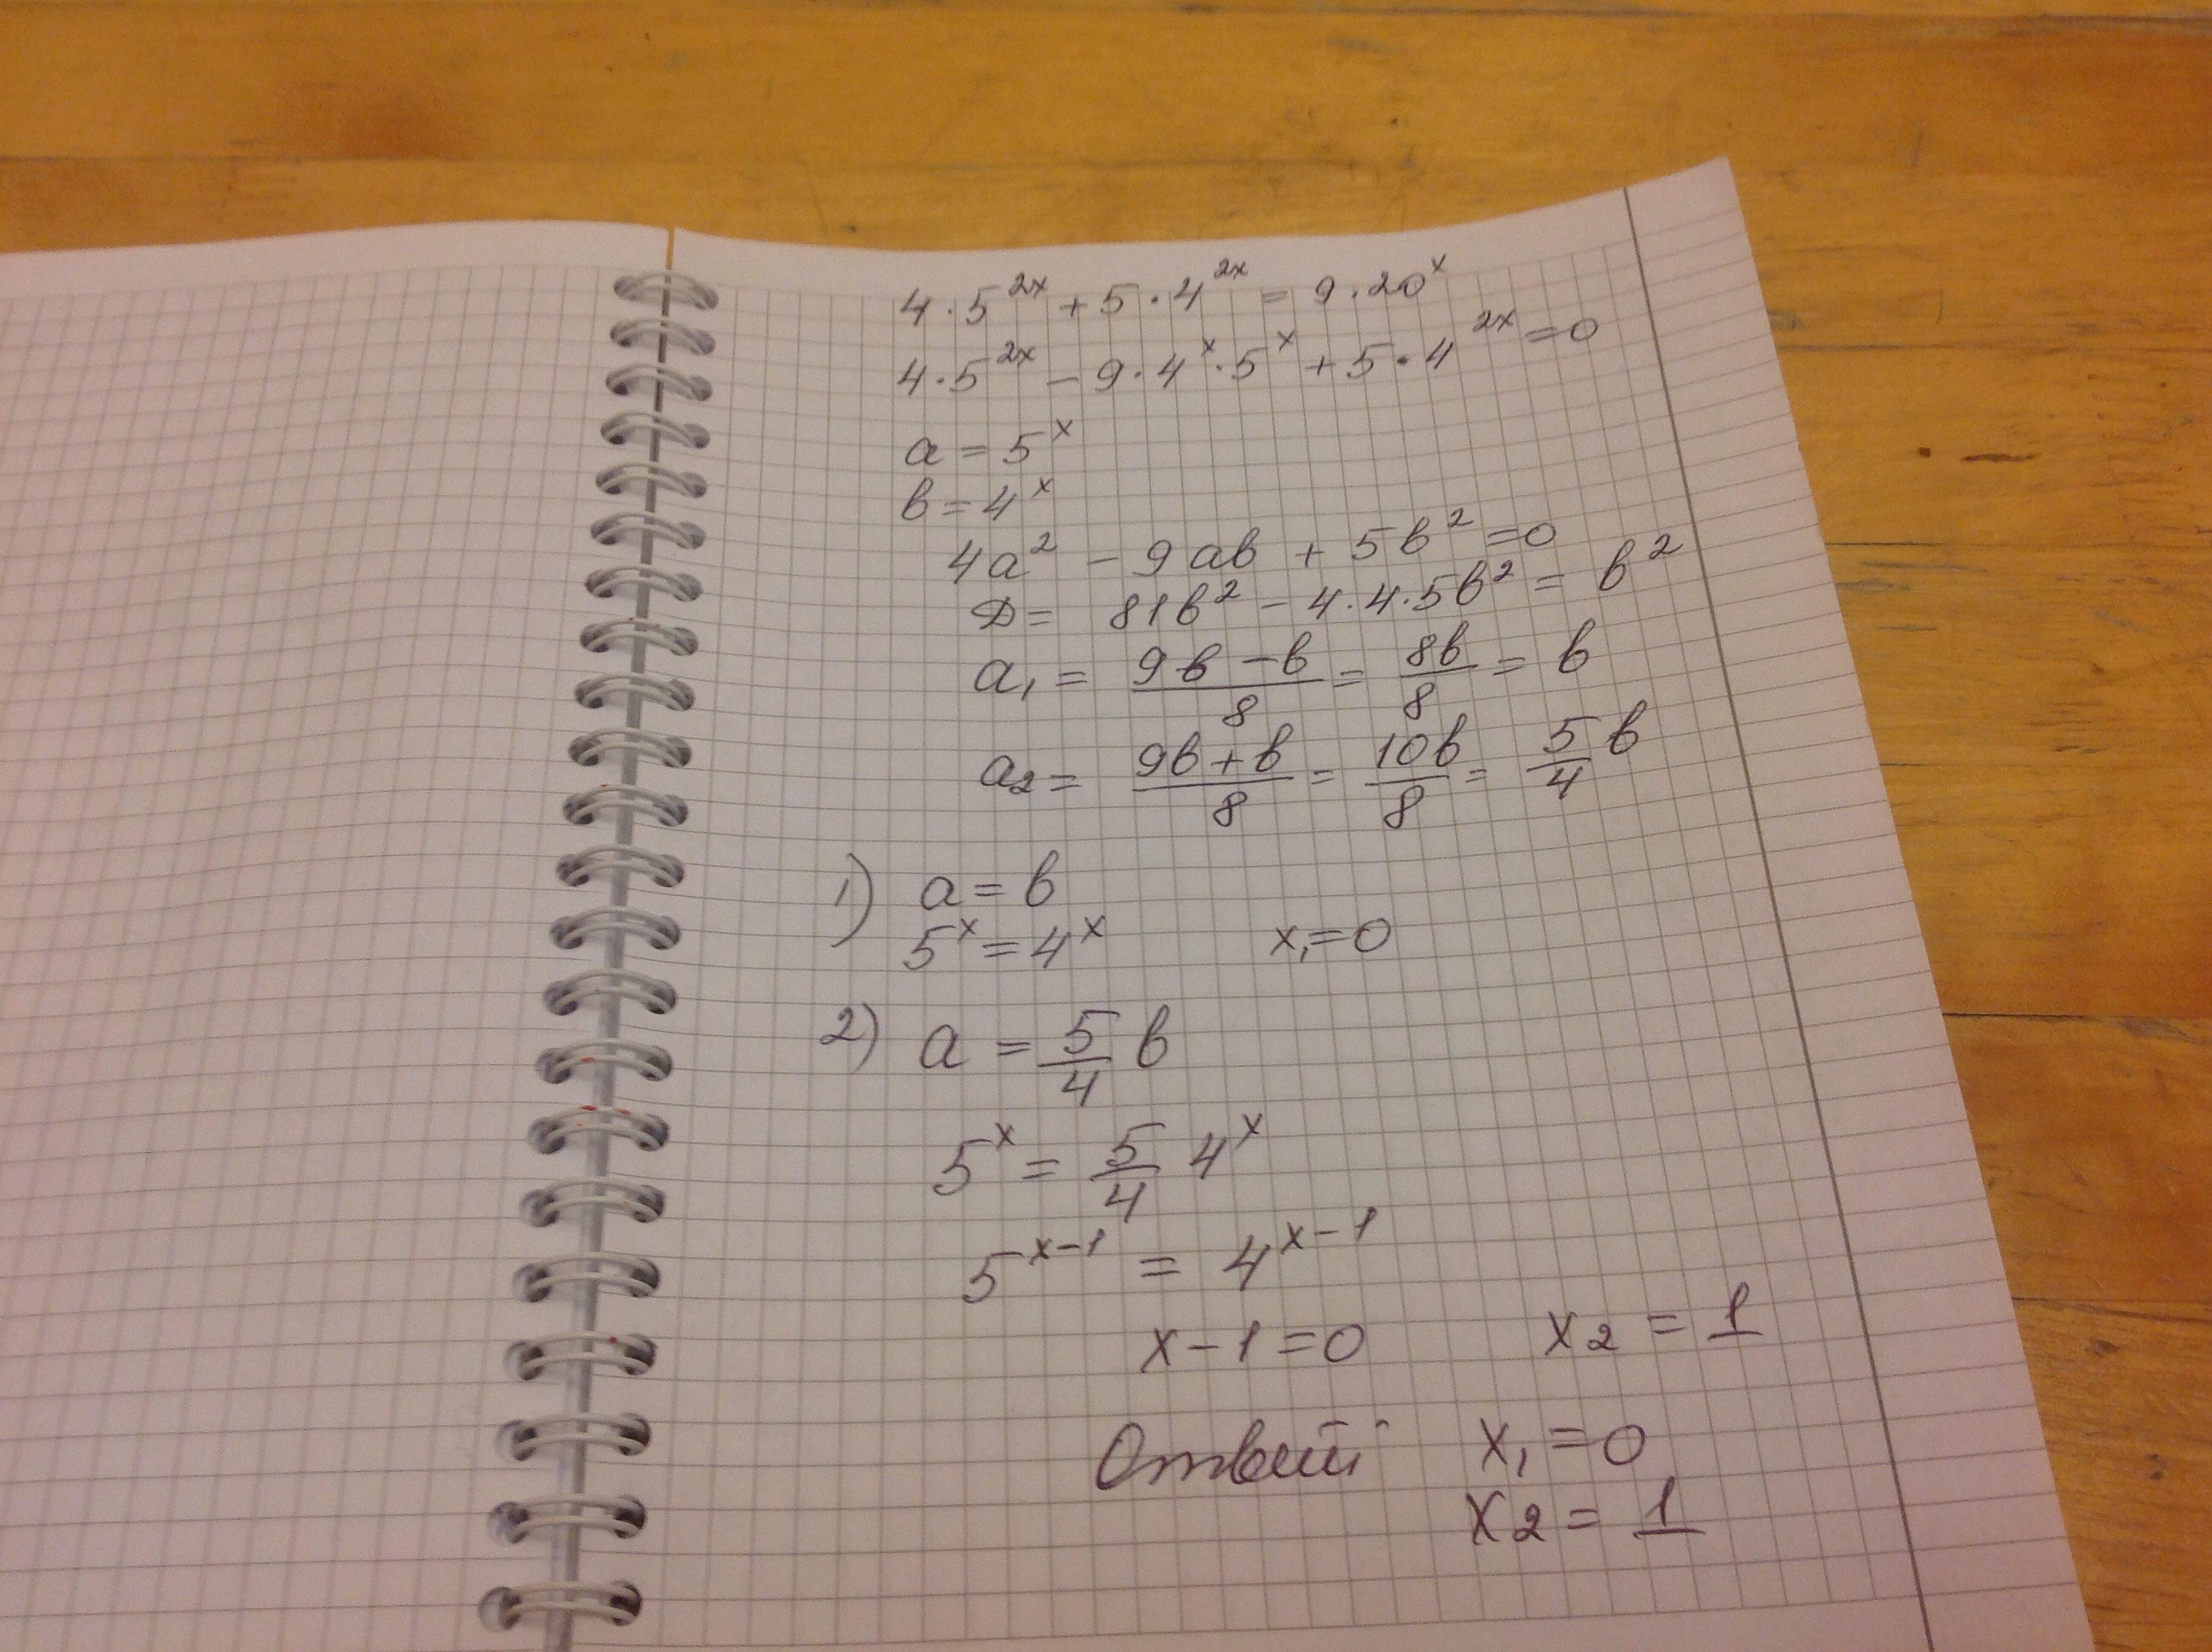 4·5^2x + 5·4^2x = 9·20^x
4·5^2x − 9·4^x·5^x + 5·4^2x = 0
a = 5^x
b = 4^x
4a² − 9ab + 5b² = 0
D = 81b² − 4·4·5b² = b²
a₁ = (9b − b)/8 = 8b/8 = b
a₂ = (9b + b)/8 = 10b/8 = 5/4 b
1) a = b
5^x = 4^x x₁ = 0
2) a = 5/4 b
5^x = 5/4 4^x
5^(x−1) = 4^(x−1)
x − 1 = 0 x₂ = 1
Ответ x₁ = 0
x₂ = 1